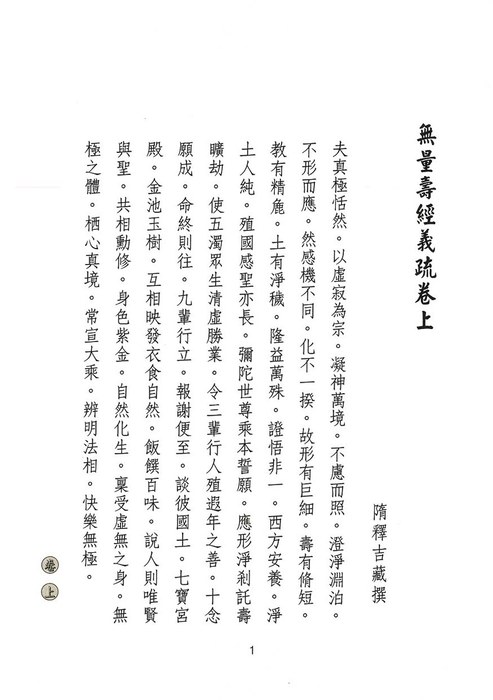 無量壽經義疏卷上
隋釋吉藏撰
夫真極恬然。以虛寂為宗。凝神萬境。不慮而照。澄淨淵泊。
不形而應。然感機不同。化不一揆。故形有巨細。壽有脩短。
教有精麁。土有淨穢。隆益萬殊。證悟非一。西方安養。淨
土人純。殖國感聖亦長。彌陀世尊乘本誓願。應形淨剎託壽
曠劫。使五濁眾生清虛勝業。令三輩行人殖遐年之善。十念
願成。命終則往。九輩行立。報謝便至。談彼國土。七寶宮
殿。金池玉樹。互相映發衣食自然。飯饌百味。說人則唯賢
與聖。共相勳修。身色紫金。自然化生。稟受虛無之身。無
極之體。栖心真境。常宣大乘。辨明法相。快樂無極。
卷上
1